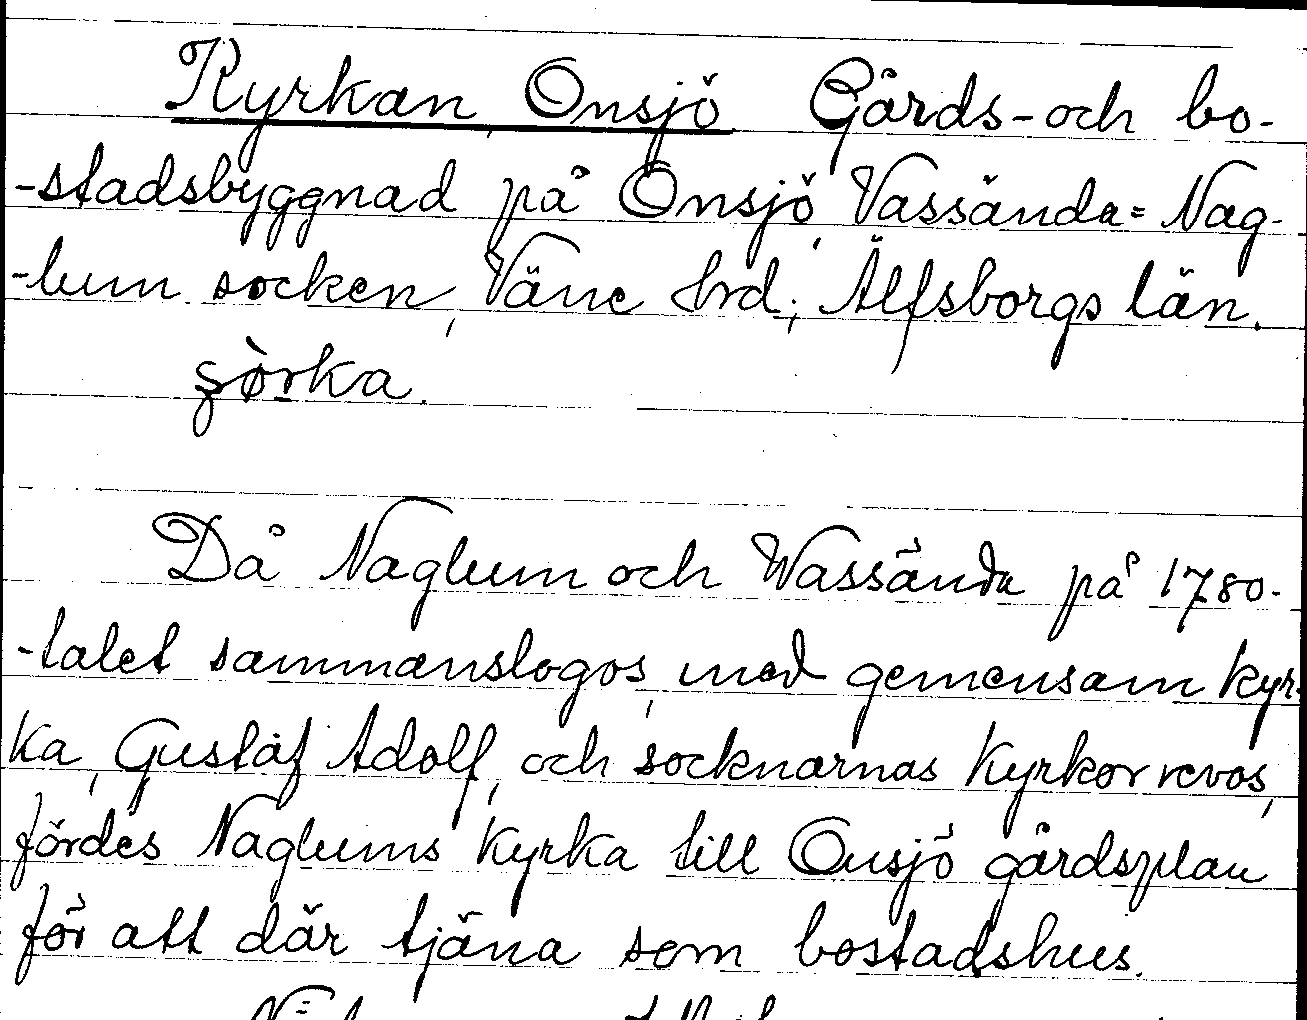 Kyrkan, Onsjö Gårds-och bo-
-stadsbyggnad på Onsjö, Vassända= Nag-
-lum socken, Väne hrd; Älfsborgs län.
Då Naglum och Wassända på 1780-
-talet sammanslogos, med gemensam kyr-
ka, Gustaf Adolf, och socknarnas kyrkor revos,
fördes Naglums kyrka till Onsjö gårdsplan
för att där tjäna som bostadshus.